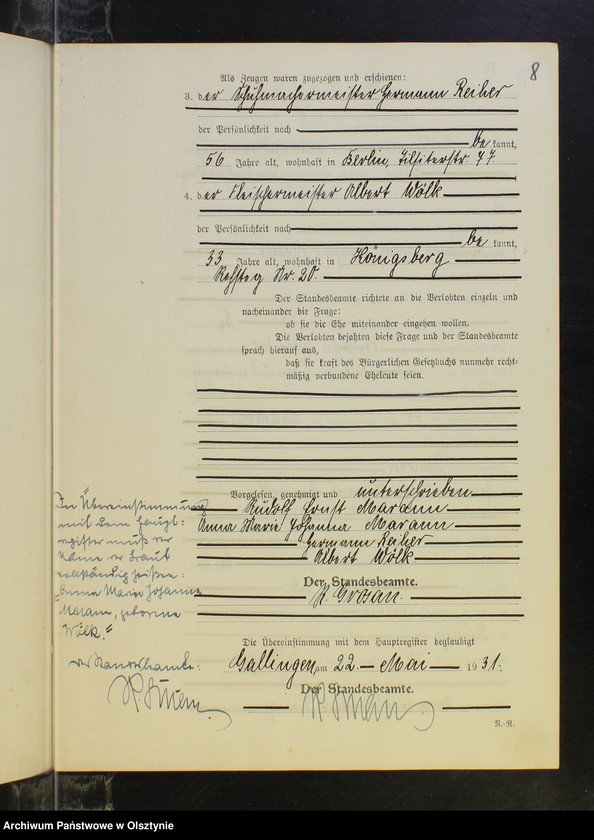 8
Als Zeugen waren zugezogen und erschienen:
3. der Schuhmachermeister Hermann Reiher
der Persönlichkeit nach
be kannt,
56 Jahre alt, wohnhaft in Berlin, Tilsiterstr 77.
4. der Fleischermeister Albert Wölk
der Persönlichkeit nach
be kannt,
33 Jahre alt, wohnhaft in Königsberg
Nr. 20.
Der Standesbeamte richtete an die Verlobten einzeln und
nacheinander die Frage:
ob sie die Ehe miteinander eingehen wollen.
Die Verlobten bejahten diese Frage und der Standesbeamte
sprach hierauf aus,
daß sie kraft des Bürgerlichen Gesetzbuchs nunmehr recht-
mäßig verbundene Eheleute seien.
Vorgelesen, genehmigt und unterschrieben
Rudolf Ernst Marann
Anna Marie Johanna Marann
Hermann Reiher
Albert Wölk
Der Standesbeamte.
In Übereinstimmung
mit dem Haupt-
register muß der
Name der Braut
vollständig heißen:
"Anna Marie Johanna
Marann, geborene
Wölk."
der Standesbeamte:
Die Übereinstimmung mit dem Hauptregister beglaubigt
Gallingen, am 22. Mai 1931.
Der Standesbeamte.
N.-R.
Archiwum Państwowe w Olsztynie